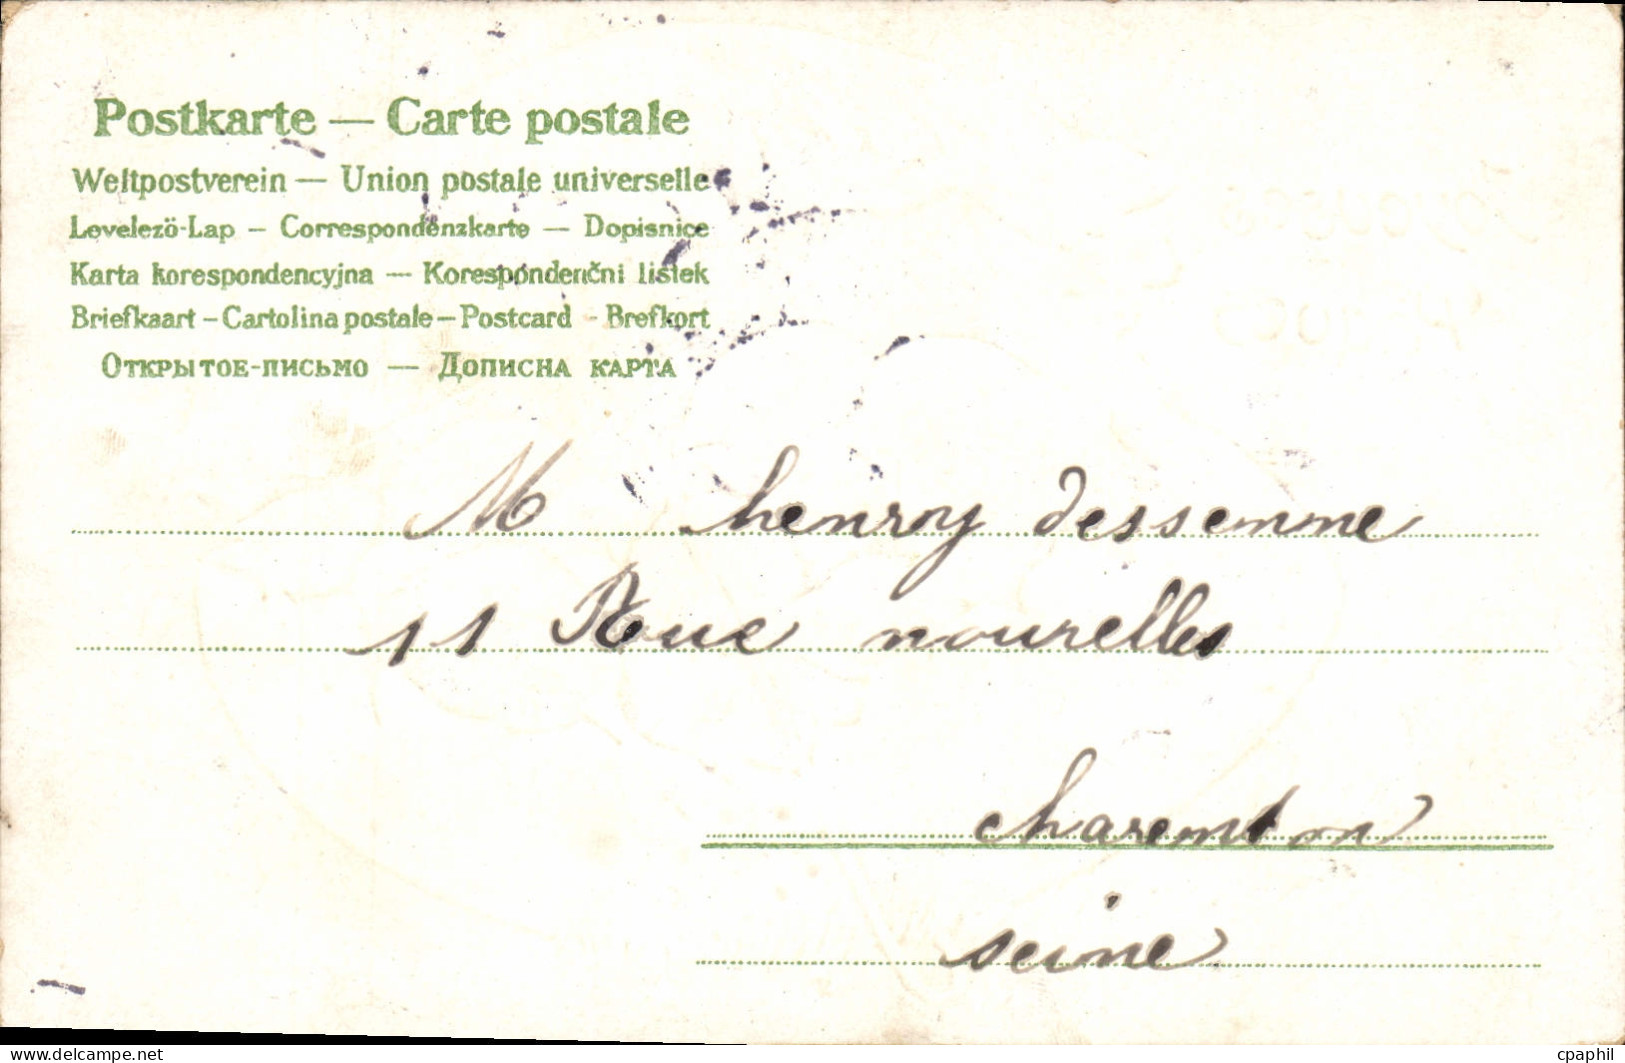 Postkarte — Carte postale
Weltpostverein — Union postale universelle
Levelező-Lap — Correspondenzkarte — Dopisnice
Karta korespondencyjna — Korespondenčni listek
Briefkaart — Cartolina postale — Postcard - Brefkort
Открытое-письмо — Дописна карта
M henry dessemme
11 Rue nouvelles
charenton
seine
www.delcampe.net
cpaphil